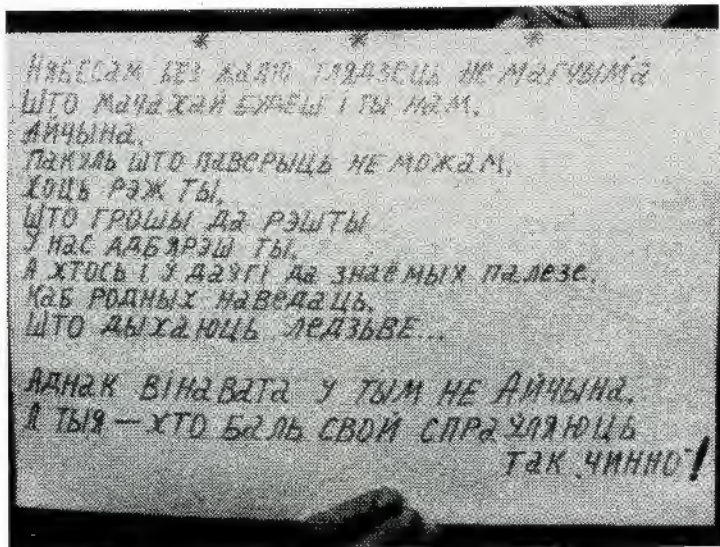 * * *
НЯБЕСАМ БЕЗ ЖАЛЮ ГЛЯДЗЕЦЬ НЕ МАГЧЫМА
ШТО МАЧАХАЙ БУДЕШ І ТЫ НАМ,
АЙЧЫНА.
ПАКУЛЬ ШТО ПАВЕРЫЦЬ НЕ МОЖАМ,
ХОЦЬ РЭЖ ТЫ,
ШТО ГРОШЫ ДА РЭШТЫ
У НАС АДБЯРЭШ ТЫ,
А ХТОСЬ І Ў ДАЎГІ ДА ЗНАЁМЫХ ПАЛЕЗЕ,
КАБ РОДНЫХ НАВЕДАЦЬ,
ШТО ДЫХАЮЦЬ ЛЕДЗЬВЕ...
АДНАК ВІНАВАТА У ТЫМ НЕ АЙЧЫНА,
А ТЫЯ — ХТО БАЛЬ СВОЙ СПРАЎЛЯЮЦЬ
ТАК ЧИННО!